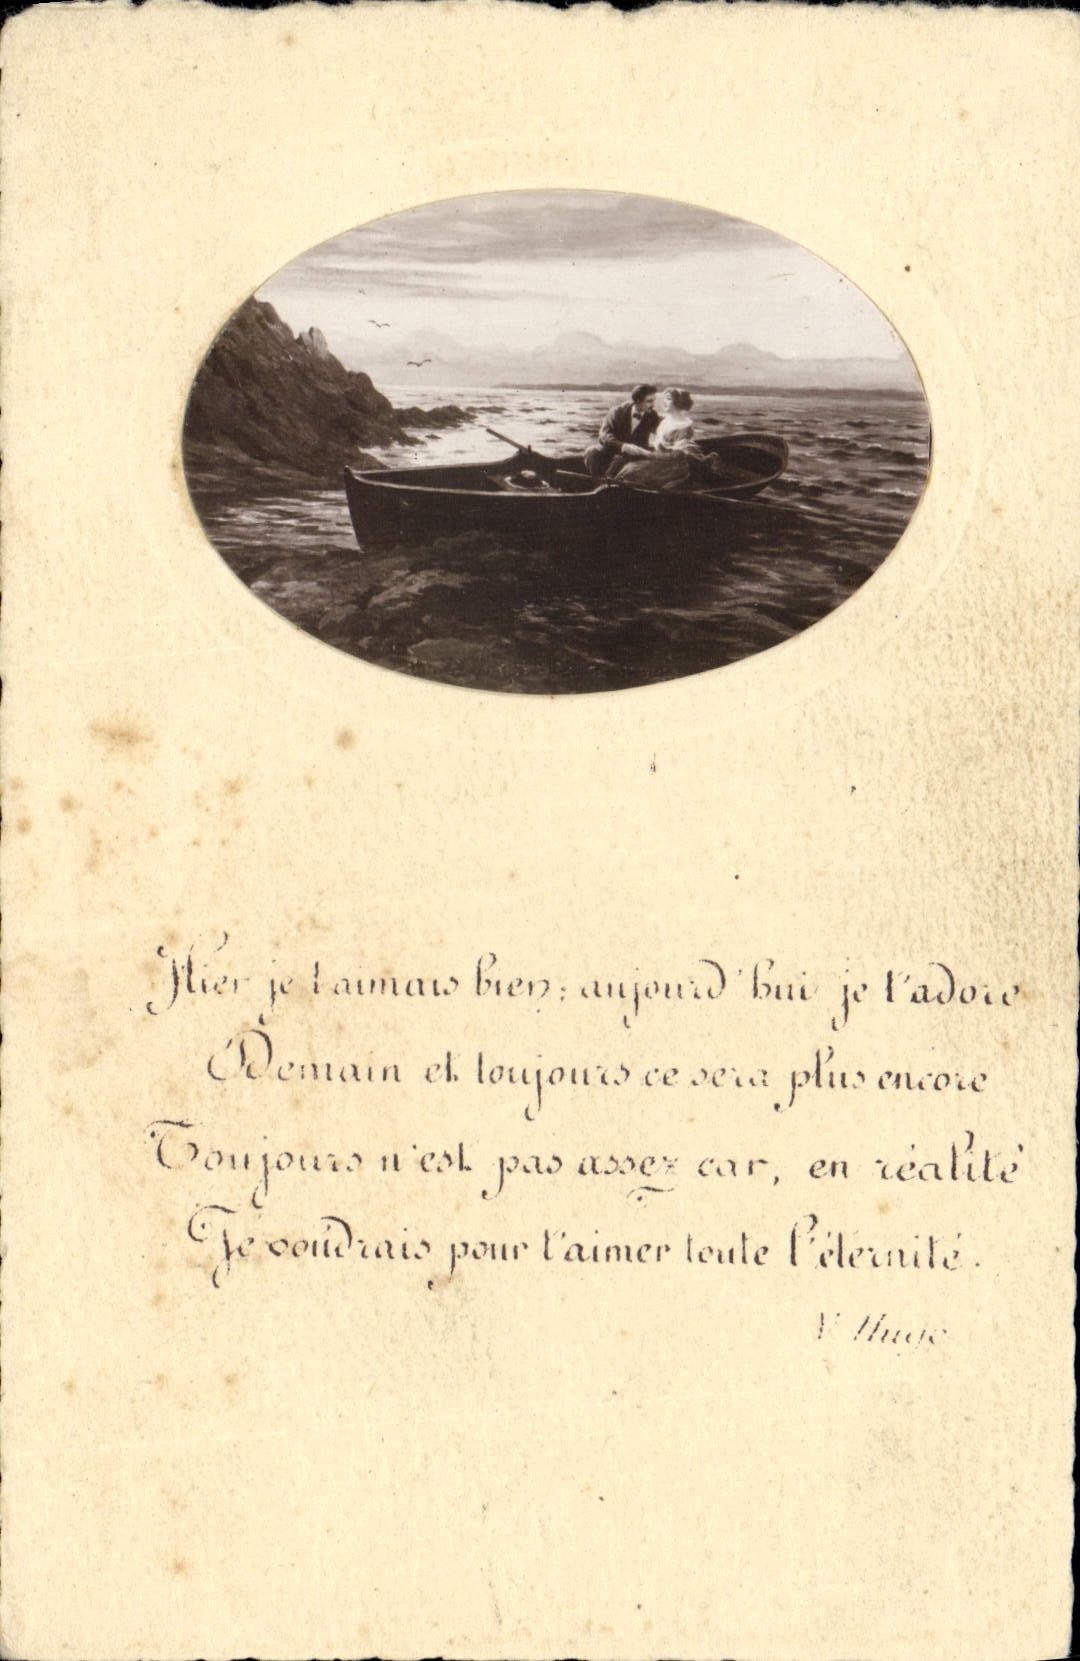 Hier je t'aimais bien; aujourd'hui je t'adore
Demain et toujours ce sera plus encore
Toujours n'est pas assez car, en réalité
Je voudrais pour t'aimer toute l'éternité.
V Hugo